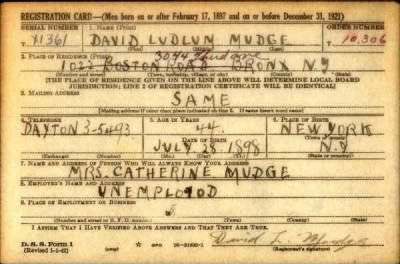 REGISTRATION CARD—(Men born on or after February 17, 1897 and on or before December 31, 1921)
SERIAL NUMBER 1. NAME (Print) ORDER NUMBER
1361 DAVID LUDLUM MUDGE 10,306
3044 Third ave
2. PLACE OF RESIDENCE (Print)
1022 BOSTON ROAD BRONX NY
(Number and street) (Town, township, village, or city) (County) (State)
[THE PLACE OF RESIDENCE GIVEN ON THE LINE ABOVE WILL DETERMINE LOCAL BOARD
JURISDICTION; LINE 2 OF REGISTRATION CERTIFICATE WILL BE IDENTICAL]
3. MAILING ADDRESS
SAME
[Mailing address if other than place indicated on line 2. If same insert word same]
4. TELEPHONE 5. AGE IN YEARS 6. PLACE OF BIRTH
DAYTON 3-5493 44 NEW YORK
DATE OF BIRTH (Town or county)
JULY 28 1898 N.Y
(Exchange) (Number) (Mo.) (Day) (Yr.) (State or country)
7. NAME AND ADDRESS OF PERSON WHO WILL ALWAYS KNOW YOUR ADDRESS
MRS. CATHERINE MUDGE
8. EMPLOYER'S NAME AND ADDRESS
UNEMPLOYOD
9. PLACE OF EMPLOYMENT OR BUSINESS
(Number and street or R. F. D. number) (Town) (County) (State)
I AFFIRM THAT I HAVE VERIFIED ABOVE ANSWERS AND THAT THEY ARE TRUE.
D. S. S. Form 1
(Revised 1-1-42) GPO 16-21630-1 David L. Mudge
(Registrant's signature)